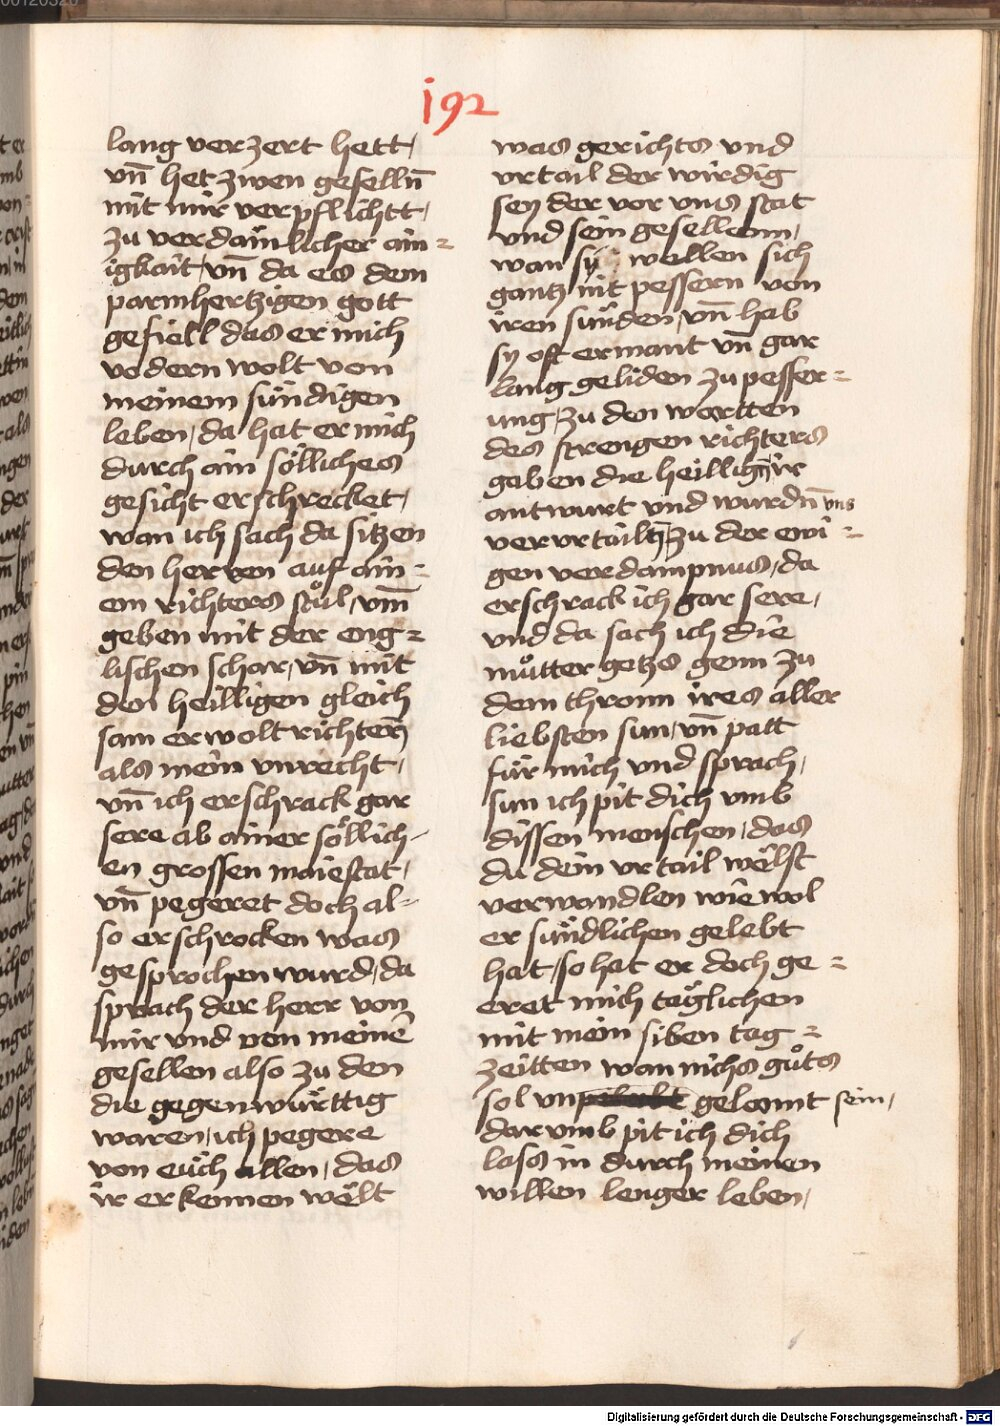 192
lang verzert hett,
vn̄ het zwen geselln̄
mit mir verpflichtt,
zu verdamlicher ain=
igkait, vn̄ da es dem
parmhertzigen gott
gefiell das er mich
vodern wolt von
meinem sündigen
leben, da hat er mich
durch ain sölliches
gesicht erschrecket,
wan ich sach da sitzen
den herren auf ain=
em richters stůl, vm̄
geben mit der eng=
lischen schar, vn̄ mit
den heilligen gleich
sam er wolt richten̄
als mein vnrecht,
vn̄ ich erschrack gar
sere ab ainer söllich-
en grossen maiestat,
vn̄ pegeret doch al-
so erschrocken was
gesprochen wurd, da
sprach der herr von
mir vnd von meinē
gesellen also zu den
die gegenwürttig
waren, ich pegere
von eüch allen, das
ir erkennen wëlt
was gerichts vnd
vrtail der wirdig
sey der vor vns stat
vnd sein gesellenn,
wan sy wellen sich
gantz nit pessern von
iren sünden, vn̄ hab
sy oft ermant vn̄ gar
lang geliden zu pesser=
ung, zu den wortten
des strengen richters
gaben die heillign̄ ir
antwurt vnd wurdn̄ vns
vervrtailn̄ zu der ewi=
gen verdampnus, da
erschrack ich gar sere,
vnd da sach ich die
můtter getzs genn zu
dem thronn ires aller
liebsten sun, vn̄ patt
für mich vnd sprach,
sun ich pit dich vmb
dissen menschen, das
du dein vrtail wëlst
verwandlen wie wol
er sündlichen gelebt
hat, so hat er doch ge=
eret mich täglichen
mit mein siben tag=
zeitten wan nichs gůts
sol vn gelonnt sein,
dar vmb pit ich dich
lass in durch meinen
willen lenger leben,
Digitalisierung gefördert durch die Deutsche Forschungsgemeinschaft - DFG